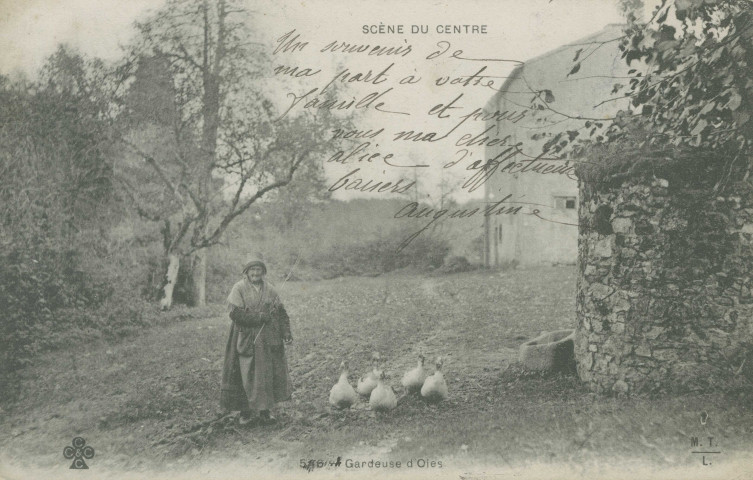 SCÈNE DU CENTRE
Un souvenir de
ma part à votre
famille et pour
vous ma cher
alice d'affectueux
baisers
Augustine
Gardeuse d'Oies
C C C C
M. T.
L.